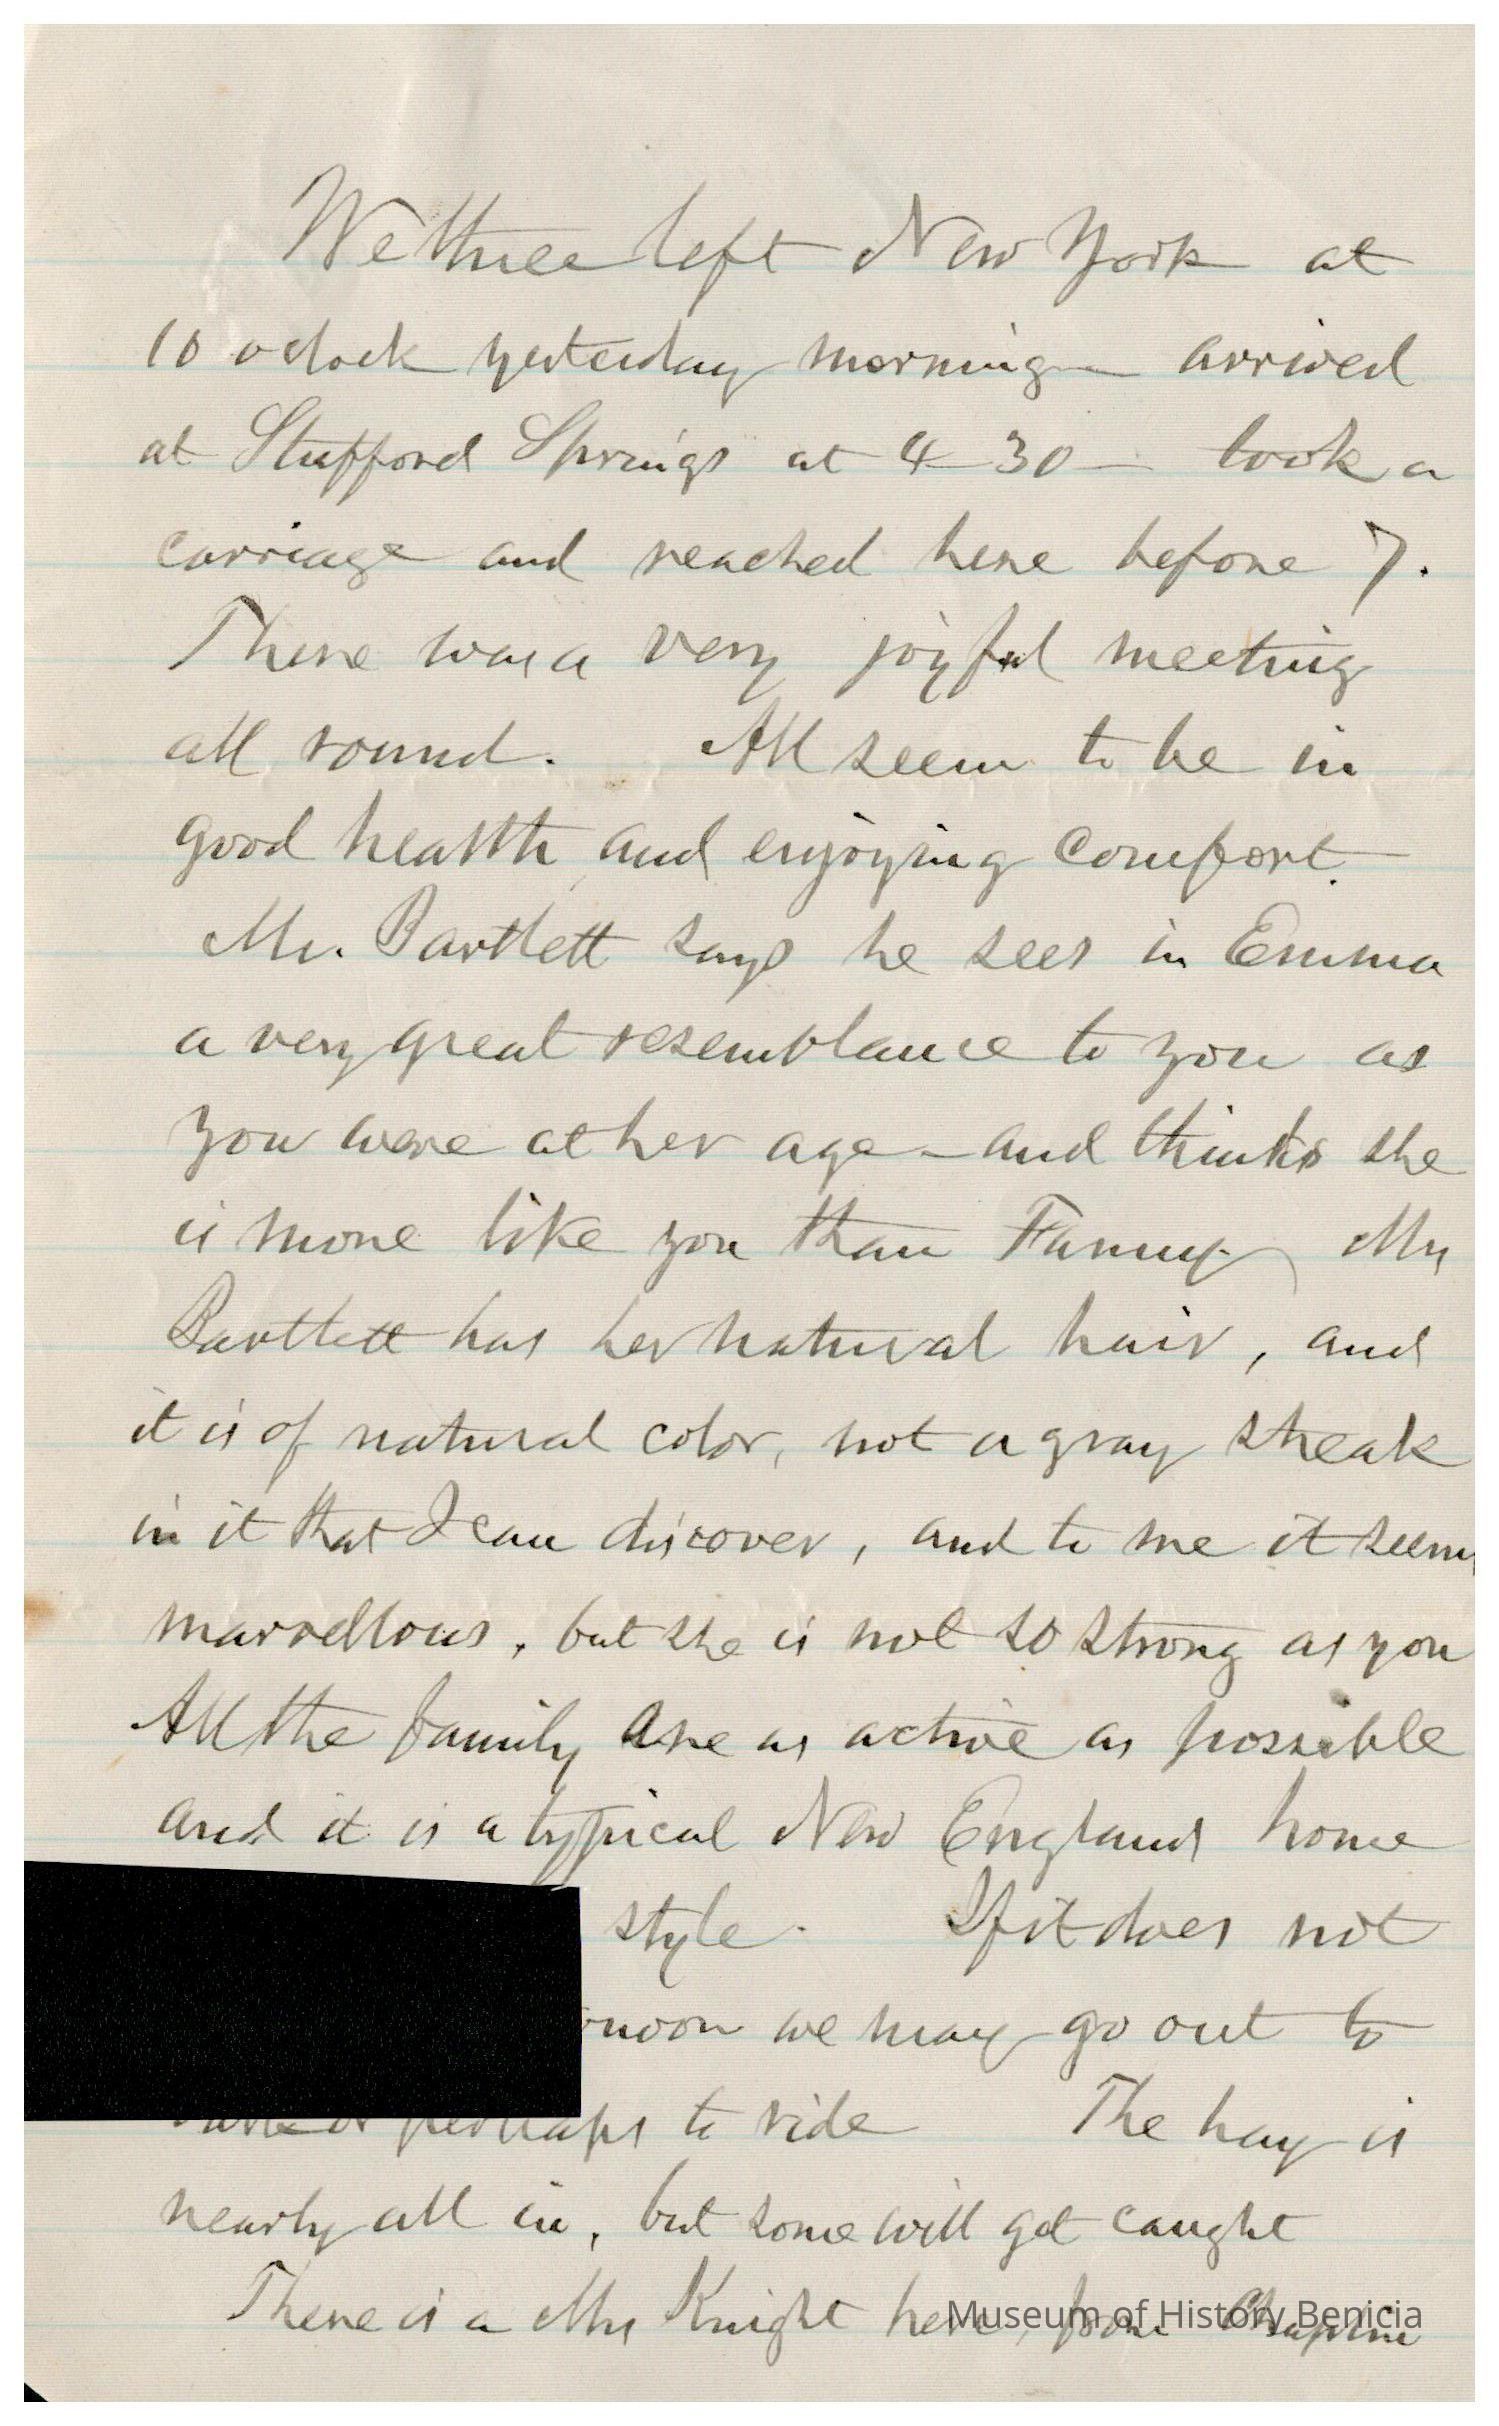 We three left New York at
10 oclock yesterday morning — arrived
at Stafford Springs at 4-30 — took a
carriage and reached here before 7.
There was a very joyful meeting
all round. All seem to be in
good health and enjoying comfort.
Mr. Bartlett says he sees in Emma
a very great resemblance to you as
you were at her age — and thinks she
is more like you than Fanny. Mrs
Bartlett has her natural hair, and
it is of natural color, not a gray streak
in it that I can discover, and to me it seems
marvellous, but she is not so strong as you
All the family are as active as possible
and it is a typical New England home
style. If it does not
rnoon we may go out to
or perhaps to ride The hay is
nearly all in, but some will get caught
There is a Mrs Knight here, from
Museum of History Benicia